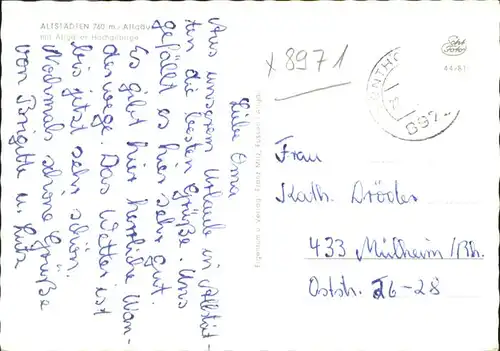 ALTSTÄDTEN 760 m / Allgäu
mit Allgäuer Hochgebirge
Liebe Oma
Aus unserem Urlaub in Altstät-
ten die besten Grüße. Uns
gefällt es hier sehr gut.
Es gibt hier herrliche Wan-
derwege. Das Wetter ist
bis jetzt sehr schön.
Nochmals schöne Grüße
von Brigitte u. Lutz
Eigentum u. Verlag: Franz Milz, Füssen
x 8971
897
Echte Foto
44-81
Frau
Kath. Dröder
433 Mülheim/Rh.
Oststr. 26-28